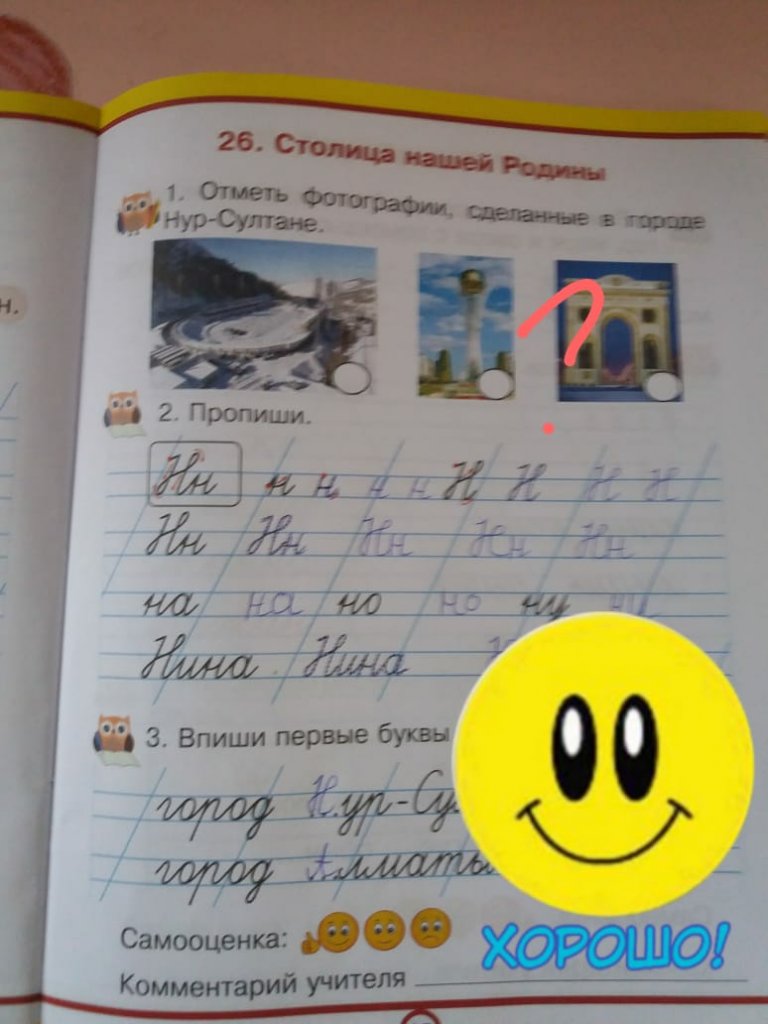 н.
26. Столица нашей Родины
1. Отметь фотографии, сделанные в городе
Нур-Султане.
?
2. Пропиши.
Нн н н н н Н Н Н Н
Нн Нн Нн Нн Нн
на на но но ну ну
Нина Нина
3. Впиши первые буквы
город Нур-Су
город Алматы
Самооценка:
ХОРОШО!
Комментарий учителя